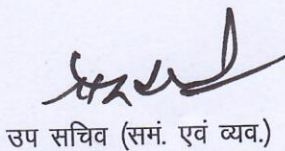 उप सचिव (समं. एवं व्यव.)